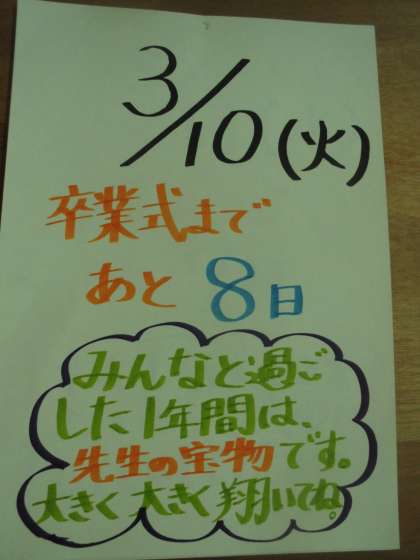 3/10(火)
卒業式まで
あと 8日
みんなと過ご
した1年間は、
先生の宝物です。
大きく大きく翔いてね。